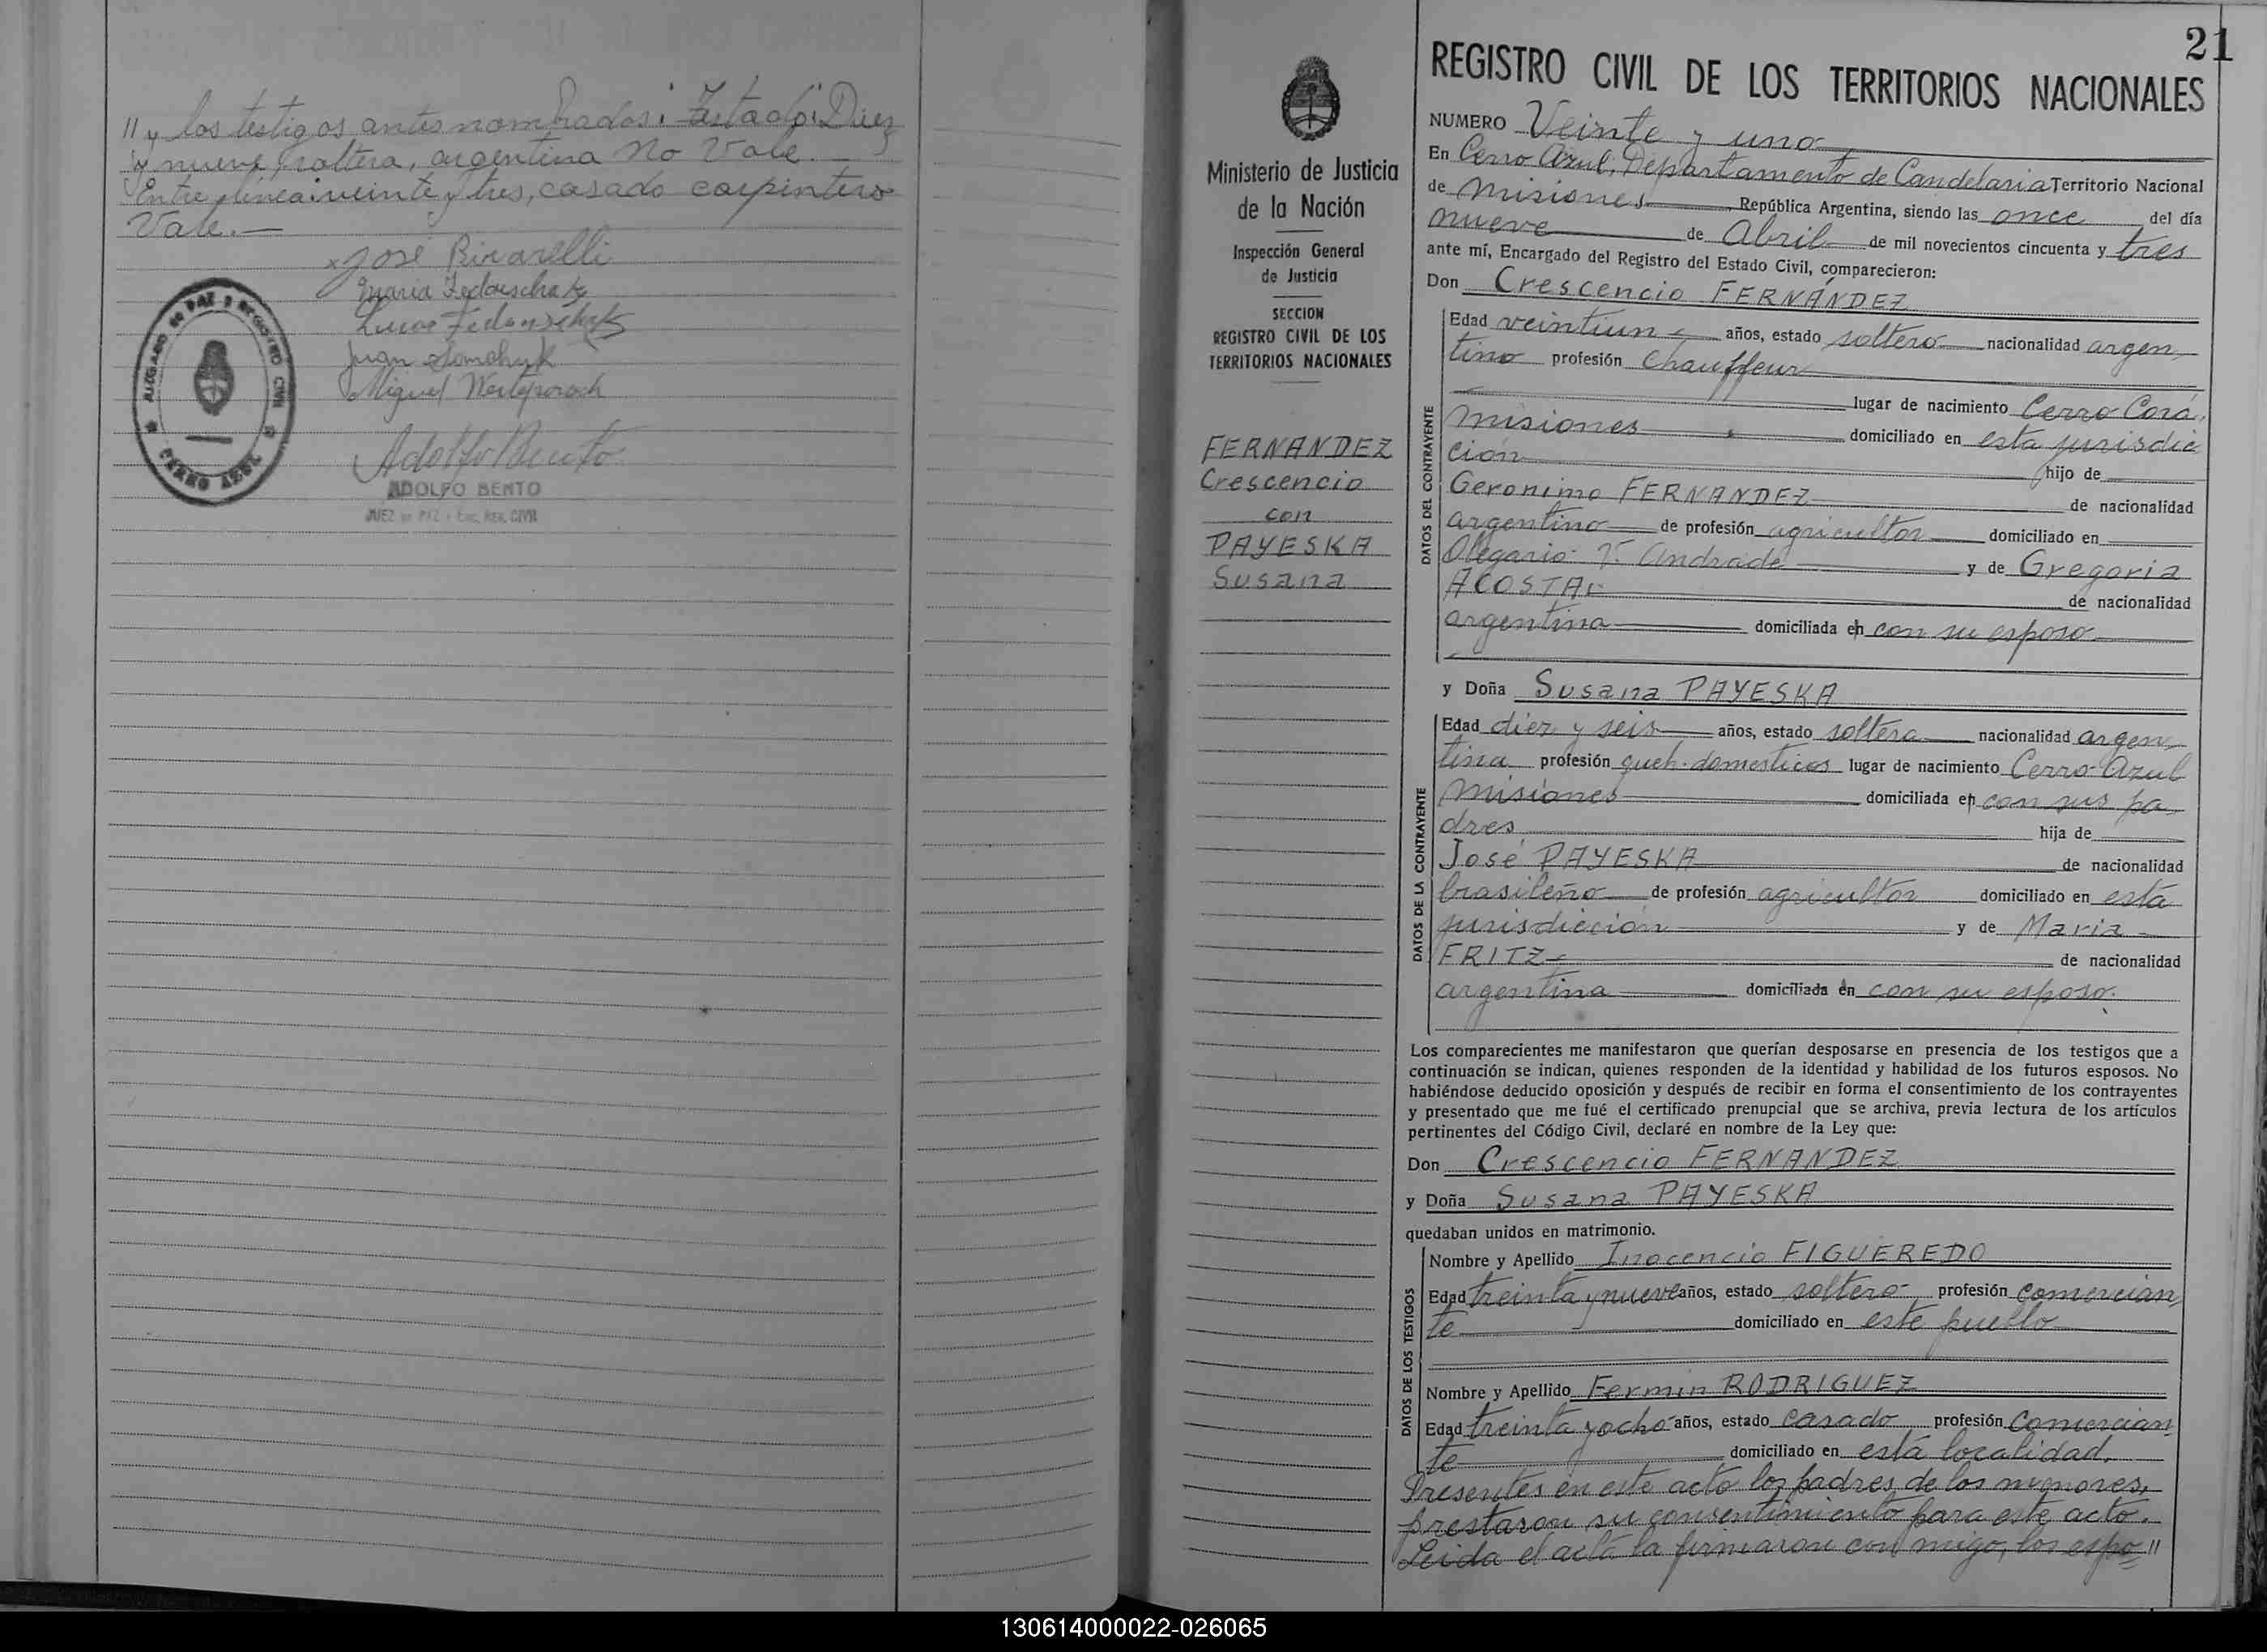 " y los testigos antes nombrados: Testado: Diez
y nueve, soltera, argentina No Vale.—
Entre línea: veinte y tres, casado carpintero
Vale.—
José
Maria
Lucas
Juan
Miguel
JUZGADO DE PAZ Y REGISTRO CIVIL
CERRO AZUL
Adolfo Bento
ADOLFO BENTO
JUEZ DE PAZ Y ENC. REG. CIVIL
21
Ministerio de Justicia
de la Nación
Inspección General
de Justicia
SECCION
REGISTRO CIVIL DE LOS
TERRITORIOS NACIONALES
FERNANDEZ
Crescencio
con
PAYESKA
Susana
REGISTRO CIVIL DE LOS TERRITORIOS NACIONALES
NUMERO Veinte y uno
En Cerro Azul, Departamento de Candelaria Territorio Nacional
de Misiones República Argentina, siendo las once del día
nueve de Abril de mil novecientos cincuenta y tres
ante mí, Encargado del Registro del Estado Civil, comparecieron:
Don Crescencio FERNÁNDEZ
DATOS DEL CONTRAYENTE
Edad veintiun años, estado soltero nacionalidad argen
tino profesión Chauffeur
lugar de nacimiento Cerro Corá,
Misiones domiciliado en esta jurisdic
ción hijo de
Geronimo FERNANDEZ de nacionalidad
argentino de profesión agricultor domiciliado en
Olegario V. Andrade y de Gregoria
ACOSTA de nacionalidad
argentina domiciliada en con su esposo
y Doña Susana PAYESKA
DATOS DE LA CONTRAYENTE
Edad diez y seis años, estado soltera nacionalidad argen
tina profesión queh. domesticos lugar de nacimiento Cerro Azul
Misiones domiciliada en con sus pa
dres hija de
José PAYESKA de nacionalidad
brasileño de profesión agricultor domiciliado en esta
jurisdicción y de Maria
FRITZ de nacionalidad
argentina domiciliada en con su esposo.
Los comparecientes me manifestaron que querían desposarse en presencia de los testigos que a
continuación se indican, quienes responden de la identidad y habilidad de los futuros esposos. No
habiéndose deducido oposición y después de recibir en forma el consentimiento de los contrayentes
y presentado que me fué el certificado prenupcial que se archiva, previa lectura de los artículos
pertinentes del Código Civil, declaré en nombre de la Ley que:
Don Crescencio FERNANDEZ
y Doña Susana PAYESKA
quedaban unidos en matrimonio.
DATOS DE LOS TESTIGOS
Nombre y Apellido Inocencio FIGUEREDO
Edad treinta y nueve años, estado soltero profesión comercian
te domiciliado en este pueblo
Nombre y Apellido Fermin RODRIGUEZ
Edad treinta y ocho años, estado casado profesión comercian
te domiciliado en está localidad.
Presentes en este acto los padres de los menores,
prestaron su consentimiento para este acto.
Leida el acta la firmaron con migo, los espo "
130614000022-026065